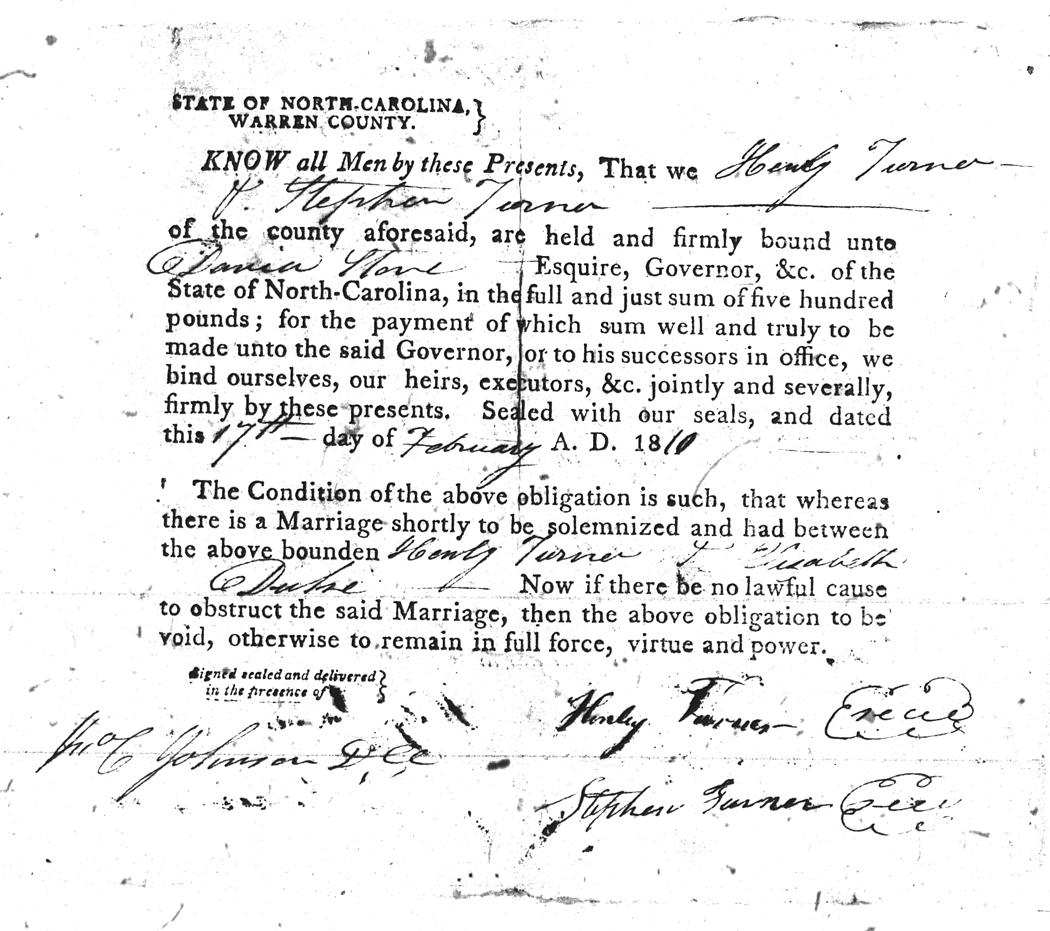 STATE OF NORTH-CAROLINA,
WARREN COUNTY.
KNOW all Men by these Presents, That we Henly Turner
& Stephen Turner
of the county aforesaid, are held and firmly bound unto
David Stone Esquire, Governor, &c. of the
State of North-Carolina, in the full and just sum of five hundred
pounds; for the payment of which sum well and truly to be
made unto the said Governor, or to his successors in office, we
bind ourselves, our heirs, executors, &c. jointly and severally,
firmly by these presents. Sealed with our seals, and dated
this 17th day of February A. D. 1810
The Condition of the above obligation is such, that whereas
there is a Marriage shortly to be solemnized and had between
the above bounden Henly Turner & Elisabeth
Duke Now if there be no lawful cause
to obstruct the said Marriage, then the above obligation to be
void, otherwise to remain in full force, virtue and power.
Signed sealed and delivered
in the presence of
Henley Turner
Jno C Johnson D.CC
Stephen Turner